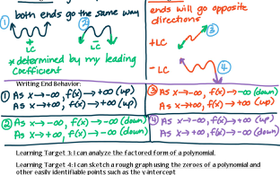 both ends go the same way
1
2
LC
LC
* determined by my leading
Coefficient
ends will go opposite
directions
+LC
3
- LC
4
Writing End Behavior:
1 As x→-∞, f(x)→+∞ (up)
As x→+∞, f(x)→+∞ (up)
2 As x→-∞, f(x)→-∞ (down)
As x→+∞, f(x)→-∞ (down)
3 As x→-∞, f(x)→-∞ (down)
As x→+∞, f(x)→+∞ (up)
4 As x→-∞, f(x)→+∞ (up)
As x→+∞, f(x)→-∞ (down)
Learning Target 3: I can analyze the factored form of a polynomial.
Learning Target 4: I can sketch a rough graph using the zeroes of a polynomial and other
easily identifiable points such as the y-intercept